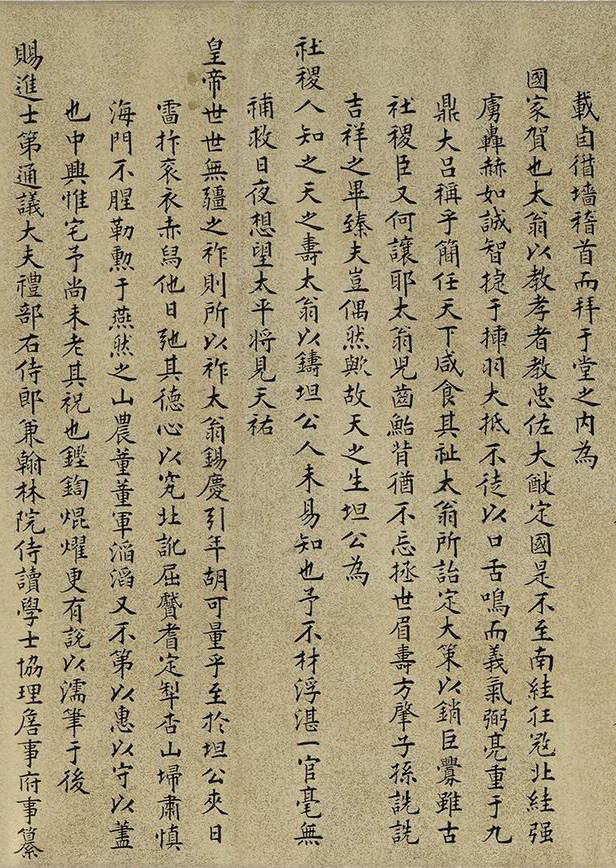 載卣僣墻稽首而拜于堂之內為
國家賀也太翁以教孝者教忠佐大猷定國是不至南絓狂寇北絓强
虜轟赫如誠智捷于揮羽大抵不徒以口舌鳴而義氣弼亮重于九
鼎大呂稱乎簡任天下咸食其祉太翁所詒定大策以銷巨釁雖古
社稷臣又何讓耶太翁兒齒鮐背猶不忘拯世眉壽方肇子孫詵詵
吉祥之畢臻夫豈偶然歟故天之生坦公為
社稷人知之天之壽太翁以鑄坦公人未易知也予不材浮湛一官毫無
補救日夜想望太平將見天祐
皇帝世世無疆之祚則所以祚太翁錫慶引年胡可量乎至於坦公夾日
雷抃袞衣赤舄他日弛其德心以究北訛屈聱耆定犁杏山埽肅慎
海門不腥勒勲于燕然之山農董董軍滔滔又不第以惠以守以蓋
也中興惟宅予尚未老其祝也鏗鍧焜燿更有說以濡筆于後
賜進士第通議大夫禮部右侍郎兼翰林院侍讀學士協理詹事府事纂